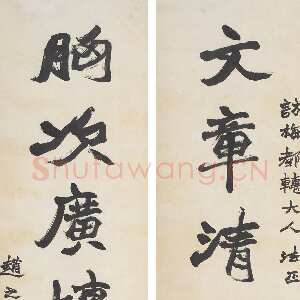 訪梅都轉大人法正
文章清
胸次廣
趙之
Shufawang.CN